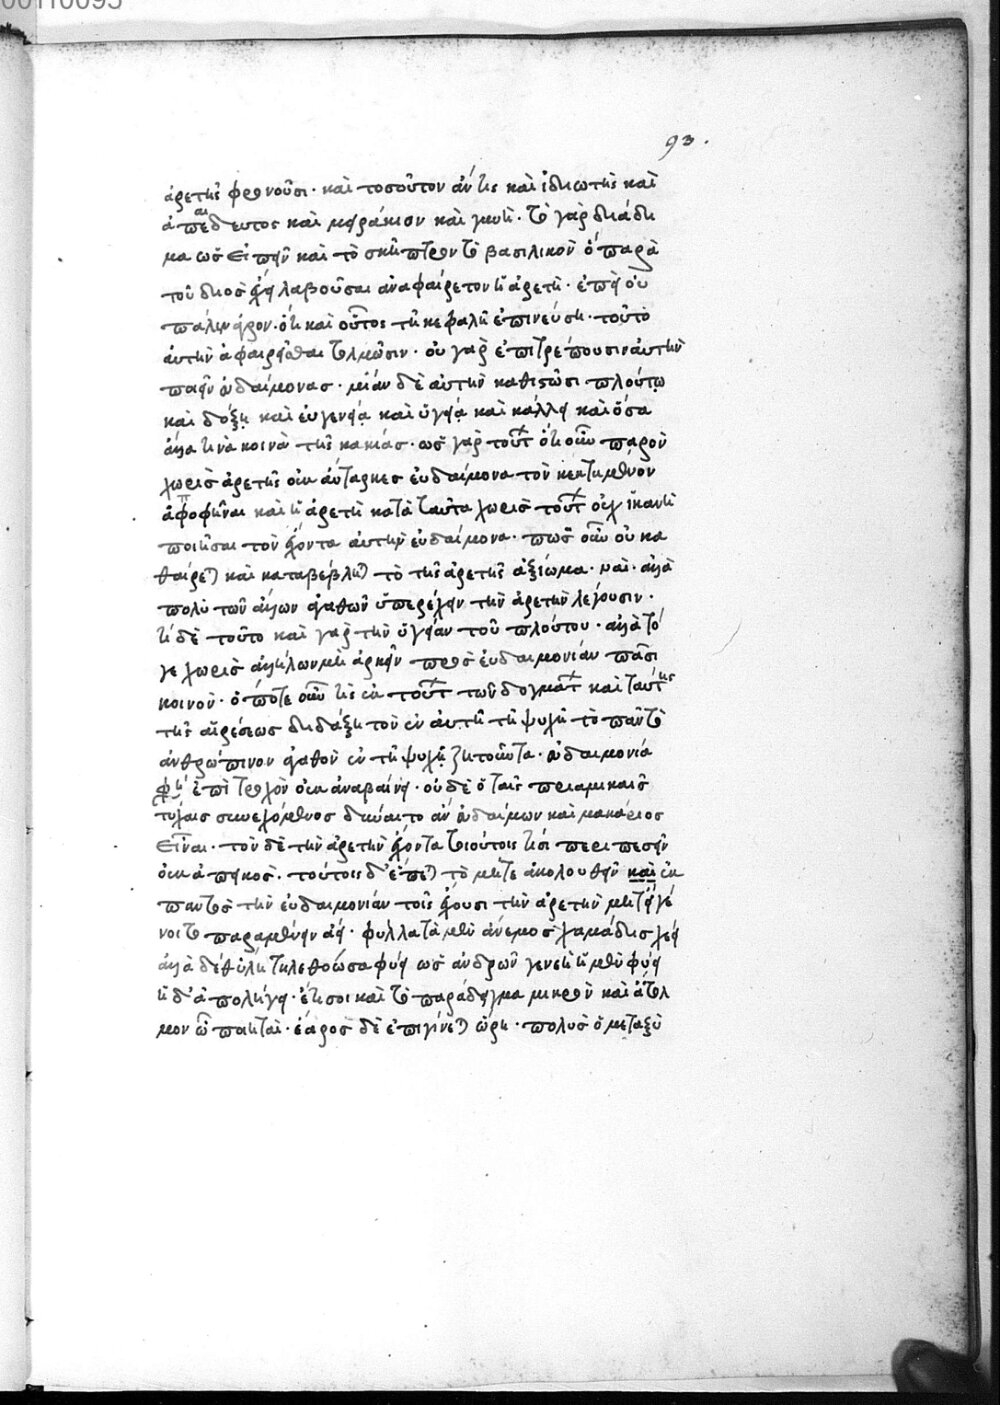 00110093
93.
ἀρετῆς φρονοῦσι · καὶ τοσοῦτον ἄν τις καὶ ἰδιώτης καὶ
ἀπαίδευτος καὶ μειράκιον καὶ γυνή · τὸ γὰρ διάδη
μα ὡς εἰπεῖν καὶ τὸ σκῆπτρον τὸ βασιλικὸν ὁ παρὰ
τοῦ διὸς ἔχει λαβοῦσαι ἀναφαίρετον ἡ ἀρετή · ἐπεὶ οὐ
πάλιν ὅτι καὶ οὗτος τῇ κεφαλῇ ἐπινεύσῃ · τοῦτο
αὐτὴν ἀφαιρεῖσθαι τολμῶσιν · οὐ γὰρ ἐπιτρέπουσιν αὐτὴν
ποιεῖν εὐδαίμονας · μίαν δὲ αὐτὴν καθιστῶσι πλούτῳ
καὶ δόξῃ καὶ εὐγενείᾳ καὶ ὑγείᾳ καὶ κάλλει καὶ ὅσα
ἄλλα τινὰ κοινὰ τῆς κακίας · ὡς γὰρ τούτων ὁτιοῦν παρὸν
χωρὶς ἀρετῆς οὐκ αὔταρκες εὐδαίμονα τὸν κεκτημένον
ἀποφῆναι καὶ ἡ ἀρετὴ κατὰ ταῦτα χωρὶς τούτων οὐχ ἱκανὴ
ποιῆσαι τὸν ἔχοντα αὐτὴν εὐδαίμονα · πῶς οὖν οὐ κα
θαίρεται καὶ καταβέβληται τὸ τῆς ἀρετῆς ἀξίωμα · ναί · ἀλλὰ
πολὺ τῶν ἄλλων ἀγαθῶν ὑπερέχειν τὴν ἀρετὴν λέγουσιν ·
τί δὲ τοῦτο καὶ γὰρ τὴν ὑγείαν τοῦ πλούτου · ἀλλὰ τό
γε χωρὶς ἀλλήλων μὴ ἀρκεῖν πρὸς εὐδαιμονίαν πᾶσι
κοινόν · ὁπότε οὖν τις ἐκ τούτων τῶν δογμάτων καὶ ταύτης
τῆς αἱρέσεως διδάξῃ τὸν ἐν αὐτῇ τῇ ψυχῇ τὸ πᾶν τὸ
ἀνθρώπινον ἀγαθὸν ἐν τῇ ψυχῇ ζητοῦντα · εὐδαιμονία
φησὶ ἐπὶ τροχὸν οὐκ ἀναβαίνει · οὐδὲ ὁ ταῖς πριαμικαῖς
τύχαις συνεχόμενος δύναιτο ἂν εὐδαίμων καὶ μακάριος
εἶναι · τὸν δὲ τὴν ἀρετὴν ἔχοντα τοιούτοις τισί περιπεσεῖν
οὐκ ἀπεικός · τούτοις δ' ἕπεται τὸ μήτε ἀκολουθεῖν καὶ ἐκ
παντὸς τὴν εὐδαιμονίαν τοῖς ἔχουσι τὴν ἀρετὴν μήτ' εἰ γέ
νοιτο παραμένειν ἀεί · φύλλα τὰ μὲν ἄνεμος χαμάδις χέει
ἄλλα δέ θ' ὕλη τηλεθόωσα φύει ὡς ἀνδρῶν γενεὴ ἡ μὲν φύει
ἡ δ' ἀπολήγει · ἔτι σοι καὶ τὸ παράδειγμα μικρὸν καὶ ἄτολ
μον ὦ ποιητά · ἔαρος δὲ ἐπιγίνεται ὥρη · πολὺς ὁ μεταξὺ